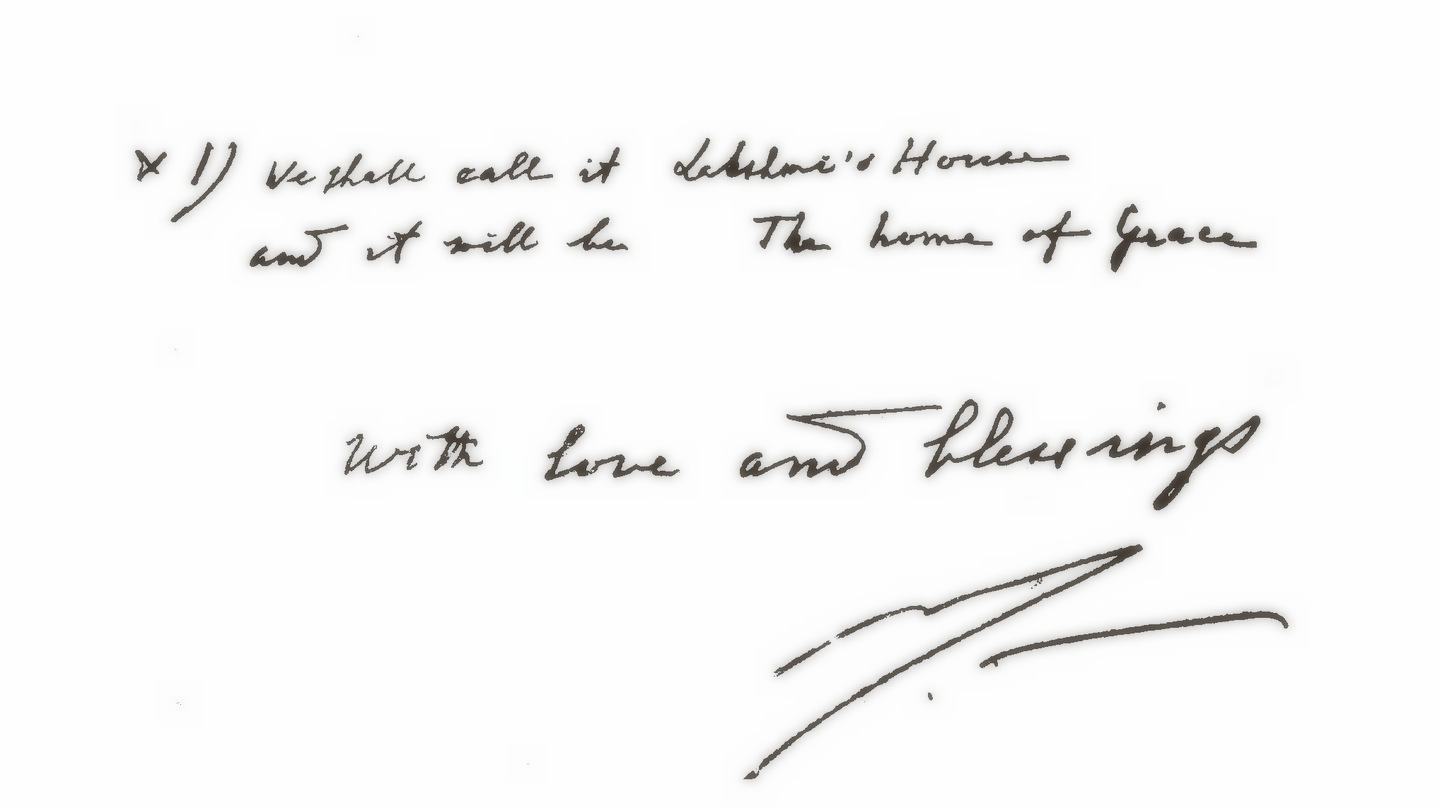 x 1) We shall call it Lakshmi's House
and it will be The home of Grace
With love and blessings